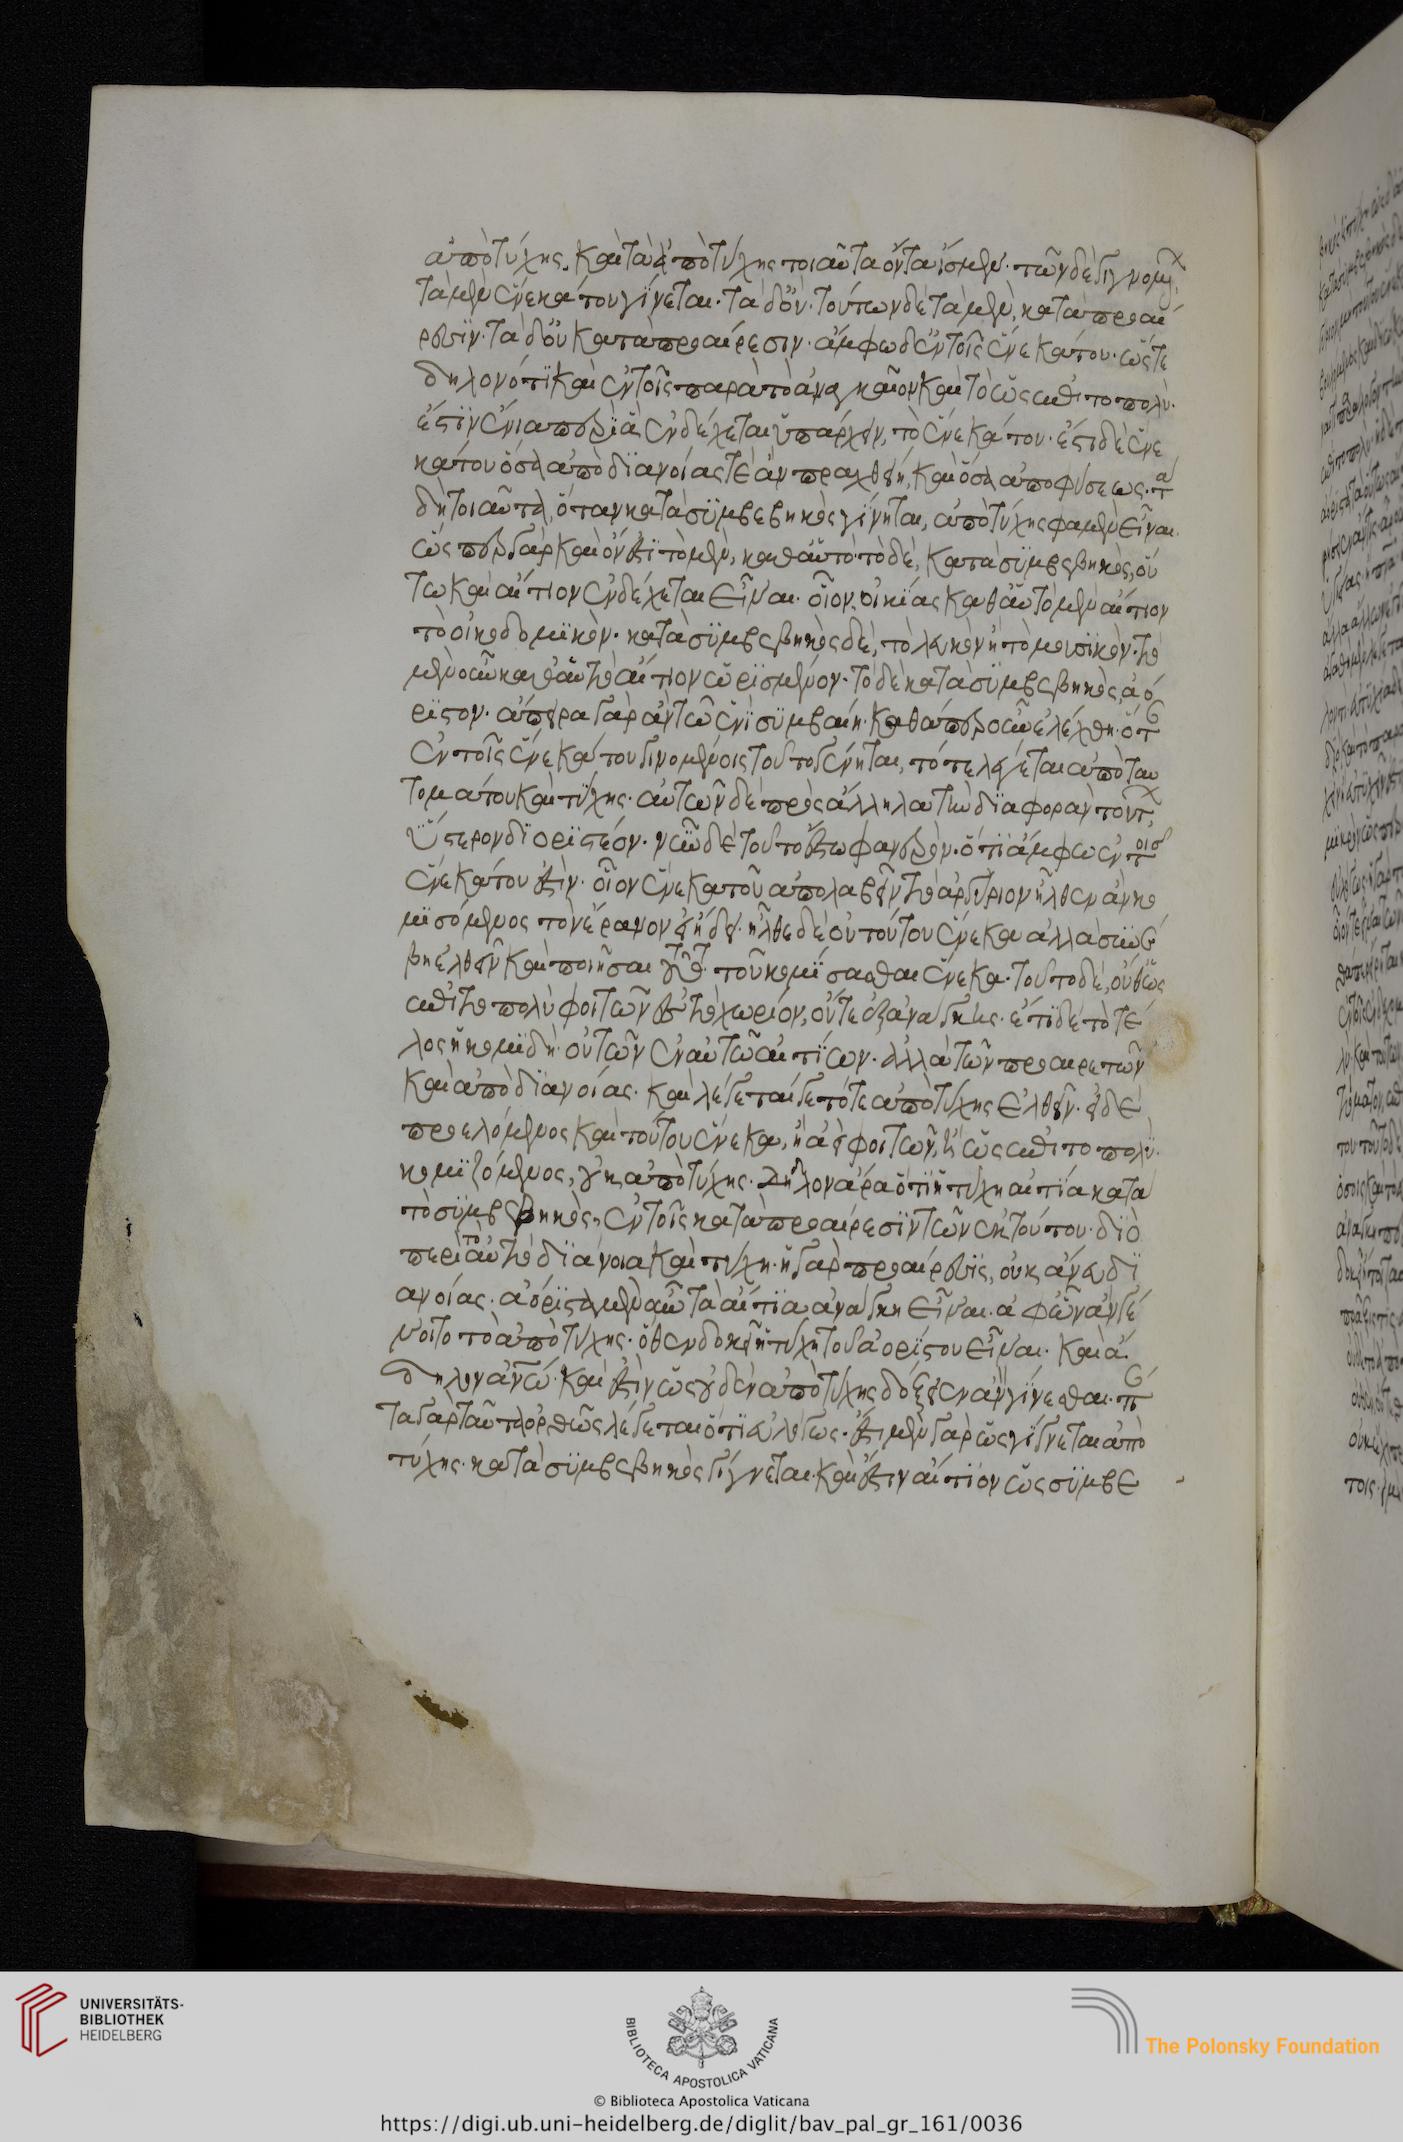 ἀπὸ τύχης. καὶ τὰ ἀπὸ τύχης τοιαῦτα ὄντα ἴσμεν· τῶν δὲ γιγνομένων
τὰ μὲν ἕνεκά του γίνεται· τὰ δ' οὔ· τούτων δὲ τὰ μὲν, κατὰ προαί
ρεσιν· τὰ δ' οὐ κατὰ προαίρεσιν· ἄμφω δ' ἐν τοῖς ἕνεκά του· ὥστε
δηλονότι καὶ ἐν τοῖς παρὰ τὸ ἀναγκαῖον καὶ τὸ ὡς ἐπιτοπολὺ·
ἔστιν ἔνια περὶ ἃ ἐνδέχεται ὑπάρχειν, τὸ ἕνεκά του· ἔστι δὲ ἕνε
κά του ὅσα ἀπὸ διανοίας τε ἂν πραχθείη, καὶ ὅσα ἀπὸ φύσεως· τὰ
δὴ τοιαῦτα, ὅταν κατὰ συμβεβηκὸς γένηται, ἀπὸ τύχης φαμὲν εἶναι·
ὥσπερ γὰρ καὶ ὄν ἐστι τὸ μὲν, καθ' αὑτὸ τὸ δὲ, κατὰ συμβεβηκὸς, οὕ
τω καὶ αἴτιον ἐνδέχεται εἶναι· οἷον οἰκίας καθ' αὑτὸ μὲν αἴτιον
τὸ οἰκοδομικὸν· κατὰ συμβεβηκὸς δὲ, τὸ λευκὸν ἢ τὸ μουσικὸν· τὸ
μὲν οὖν καθ' αὑτὸ αἴτιον ὡρισμένον· τὸ δὲ κατὰ συμβεβηκὸς, ἀό
ριστον· ἄπειρα γὰρ ἂν τῷ ἑνὶ συμβαίη· καθάπερ οὖν ἐλέχθη· ὅτε
ἐν τοῖς ἕνεκά του γινομένοις τοῦτο γένηται, τότε λέγεται ἀπὸ ταυ
τομάτου καὶ τύχης· αὐτῶν δὲ πρὸς ἄλληλα τὴν διαφορὰν τούτων
ὕστερον διοριστέον· νῦν δὲ τοῦτο ἔστω φανερὸν· ὅτι ἄμφω ἐν τοῖς
ἕνεκά του ἐστίν· οἷον ἕνεκα τοῦ ἀπολαβεῖν τὸ ἀργύριον ἦλθεν ἂν κο
μισόμενος τὸν ἔρανον εἰ ᾔδει· ἦλθε δὲ οὐ τούτου ἕνεκα ἀλλὰ συνέ
βη ἐλθεῖν καὶ ποιῆσαι τοῦτο τοῦ κομίσασθαι ἕνεκα· τοῦτο δὲ, οὔθ' ὡς
ἐπὶ τὸ πολὺ φοιτῶν εἰς τὸ χωρίον, οὔτε ἐξ ἀνάγκης· ἔστι δὲ τὸ τέ
λος ἡ κομιδὴ· οὐ τῶν ἐν αὐτῷ αἰτίων· ἀλλὰ τῶν προαιρετῶν
καὶ ἀπὸ διανοίας· καὶ λέγεταί γε τότε ἀπὸ τύχης ἐλθεῖν· εἰ δὲ
προελόμενος καὶ τούτου ἕνεκα, ἢ ἀεὶ φοιτῶν, ἢ ὡς ἐπιτοπολὺ·
κομιζόμενος, οὐκ ἀπὸ τύχης· δῆλον ἄρα ὅτι ἡ τύχη αἰτία κατὰ
τὸ συμβεβηκὸς, ἐν τοῖς κατὰ προαίρεσιν τῶν ἕνεκα τούτου· διὸ
περὶ τὸ αὐτὸ διάνοια καὶ τύχη· ἡ γὰρ προαίρεσις, οὐκ ἄνευ δι
ανοίας· ἀόριστα μὲν οὖν τὰ αἴτια ἀνάγκη εἶναι· ἀφ' ὧν ἂν γέ
νοιτο τὸ ἀπὸ τύχης· ὅθεν δοκεῖ ἡ τύχη τοῦ ἀορίστου εἶναι· καὶ ἄ
δηλον ἀνθρώπῳ· καὶ ἔστιν ὡς οὐδὲν ἀπὸ τύχης δόξειεν ἂν γίνεσθαι· πάν
τα γὰρ ταῦτα ὀρθῶς λέγεται ὅτι εὐλόγως· ἔστι μὲν γὰρ ὡς γίγνεται ἀπὸ
τύχης· κατὰ συμβεβηκὸς γίγνεται· καὶ ἔστιν αἴτιον ὡς συμβε
UNIVERSITÄTS-
BIBLIOTHEK
HEIDELBERG
BIBLIOTECA APOSTOLICA VATICANA
The Polonsky Foundation
© Biblioteca Apostolica Vaticana
https://digi.ub.uni-heidelberg.de/diglit/bav_pal_gr_161/0036